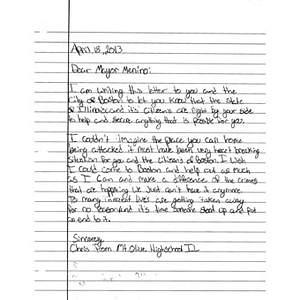 April 18, 2013
Dear Mayor Menino:
I am writing this letter to you and the
city of Boston to let you know that the state
of Illinois and it's citizens are right by your side
to help and secure anything that is possible for you.
I couldn't imagine the place you call home
being attacked it must have been very heart breaking
situation for you and the citizens of Boston. I wish
I could come to Boston and help out as much
as I can and make a difference of the crimes
that are happening we just can't have it anymore.
To many innocent lives are getting taken away
for no reason and it's time someone stood up and put
an end to it.
Sincerely,
Chris from Mt Olive Highschool IL